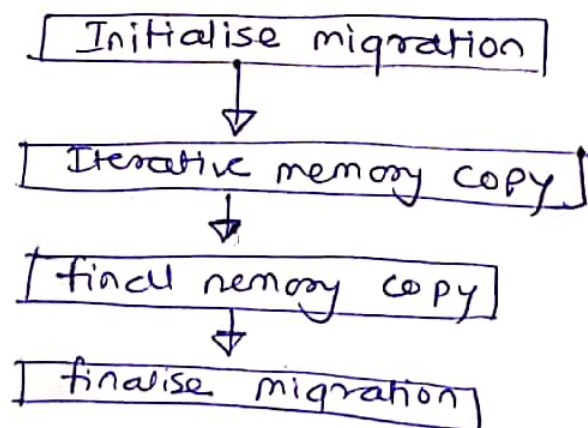 Initialise migration
Iterative memory copy
final memory copy
finalise migration